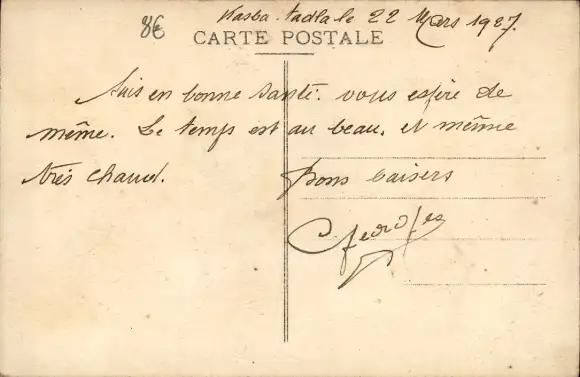 8€
Kasba-Tadla le 22 Mars 1927.
CARTE POSTALE
Suis en bonne santé. vous espère de
même. Le temps est au beau, et même
très chaud.
Bons baisers
Georges